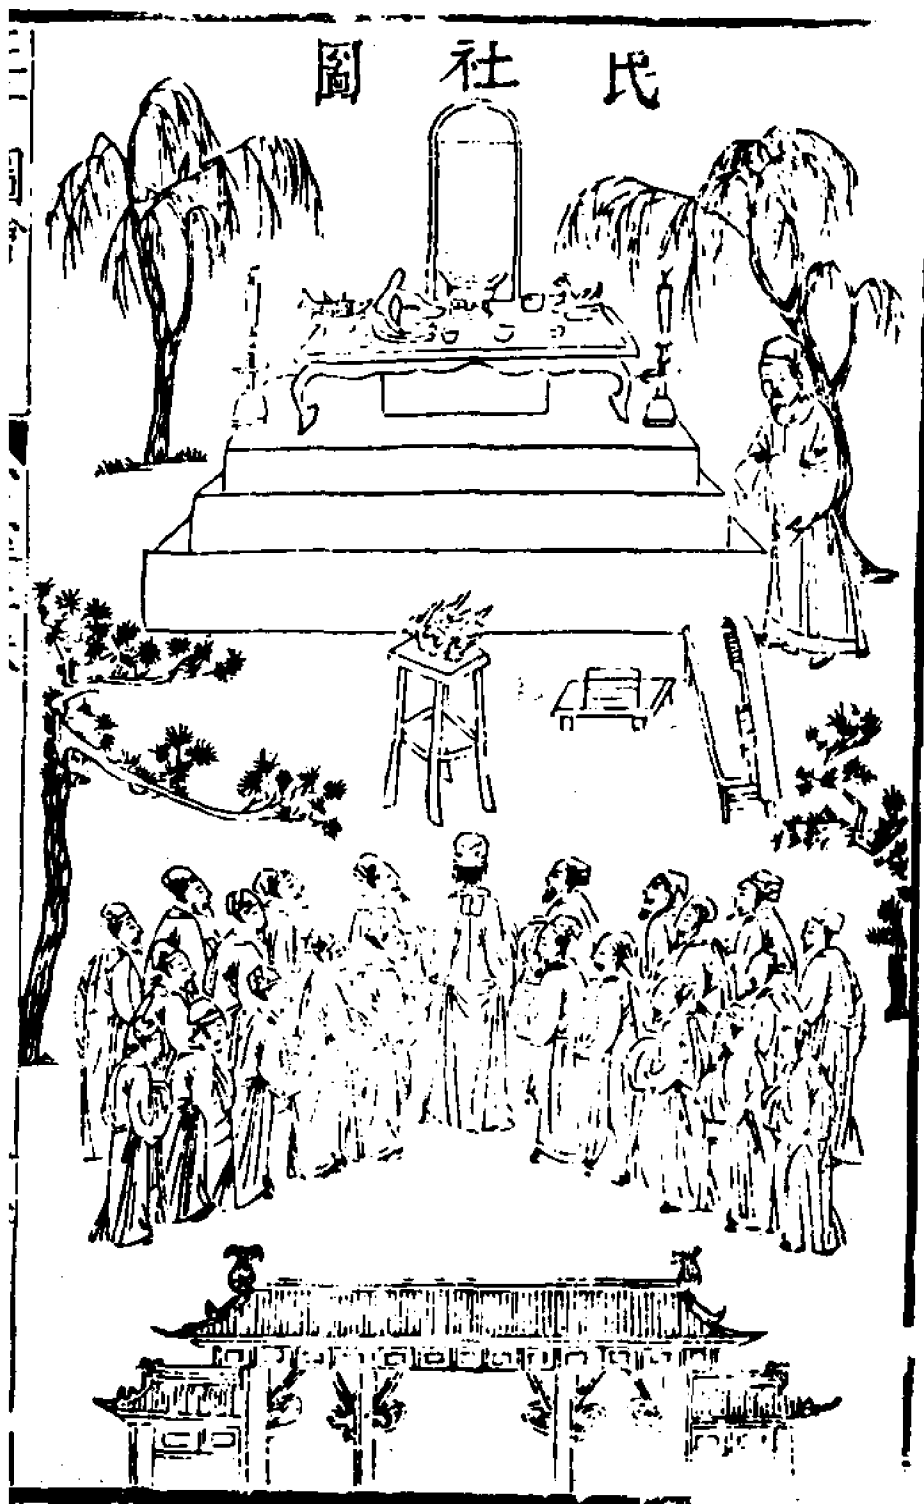 民社圖